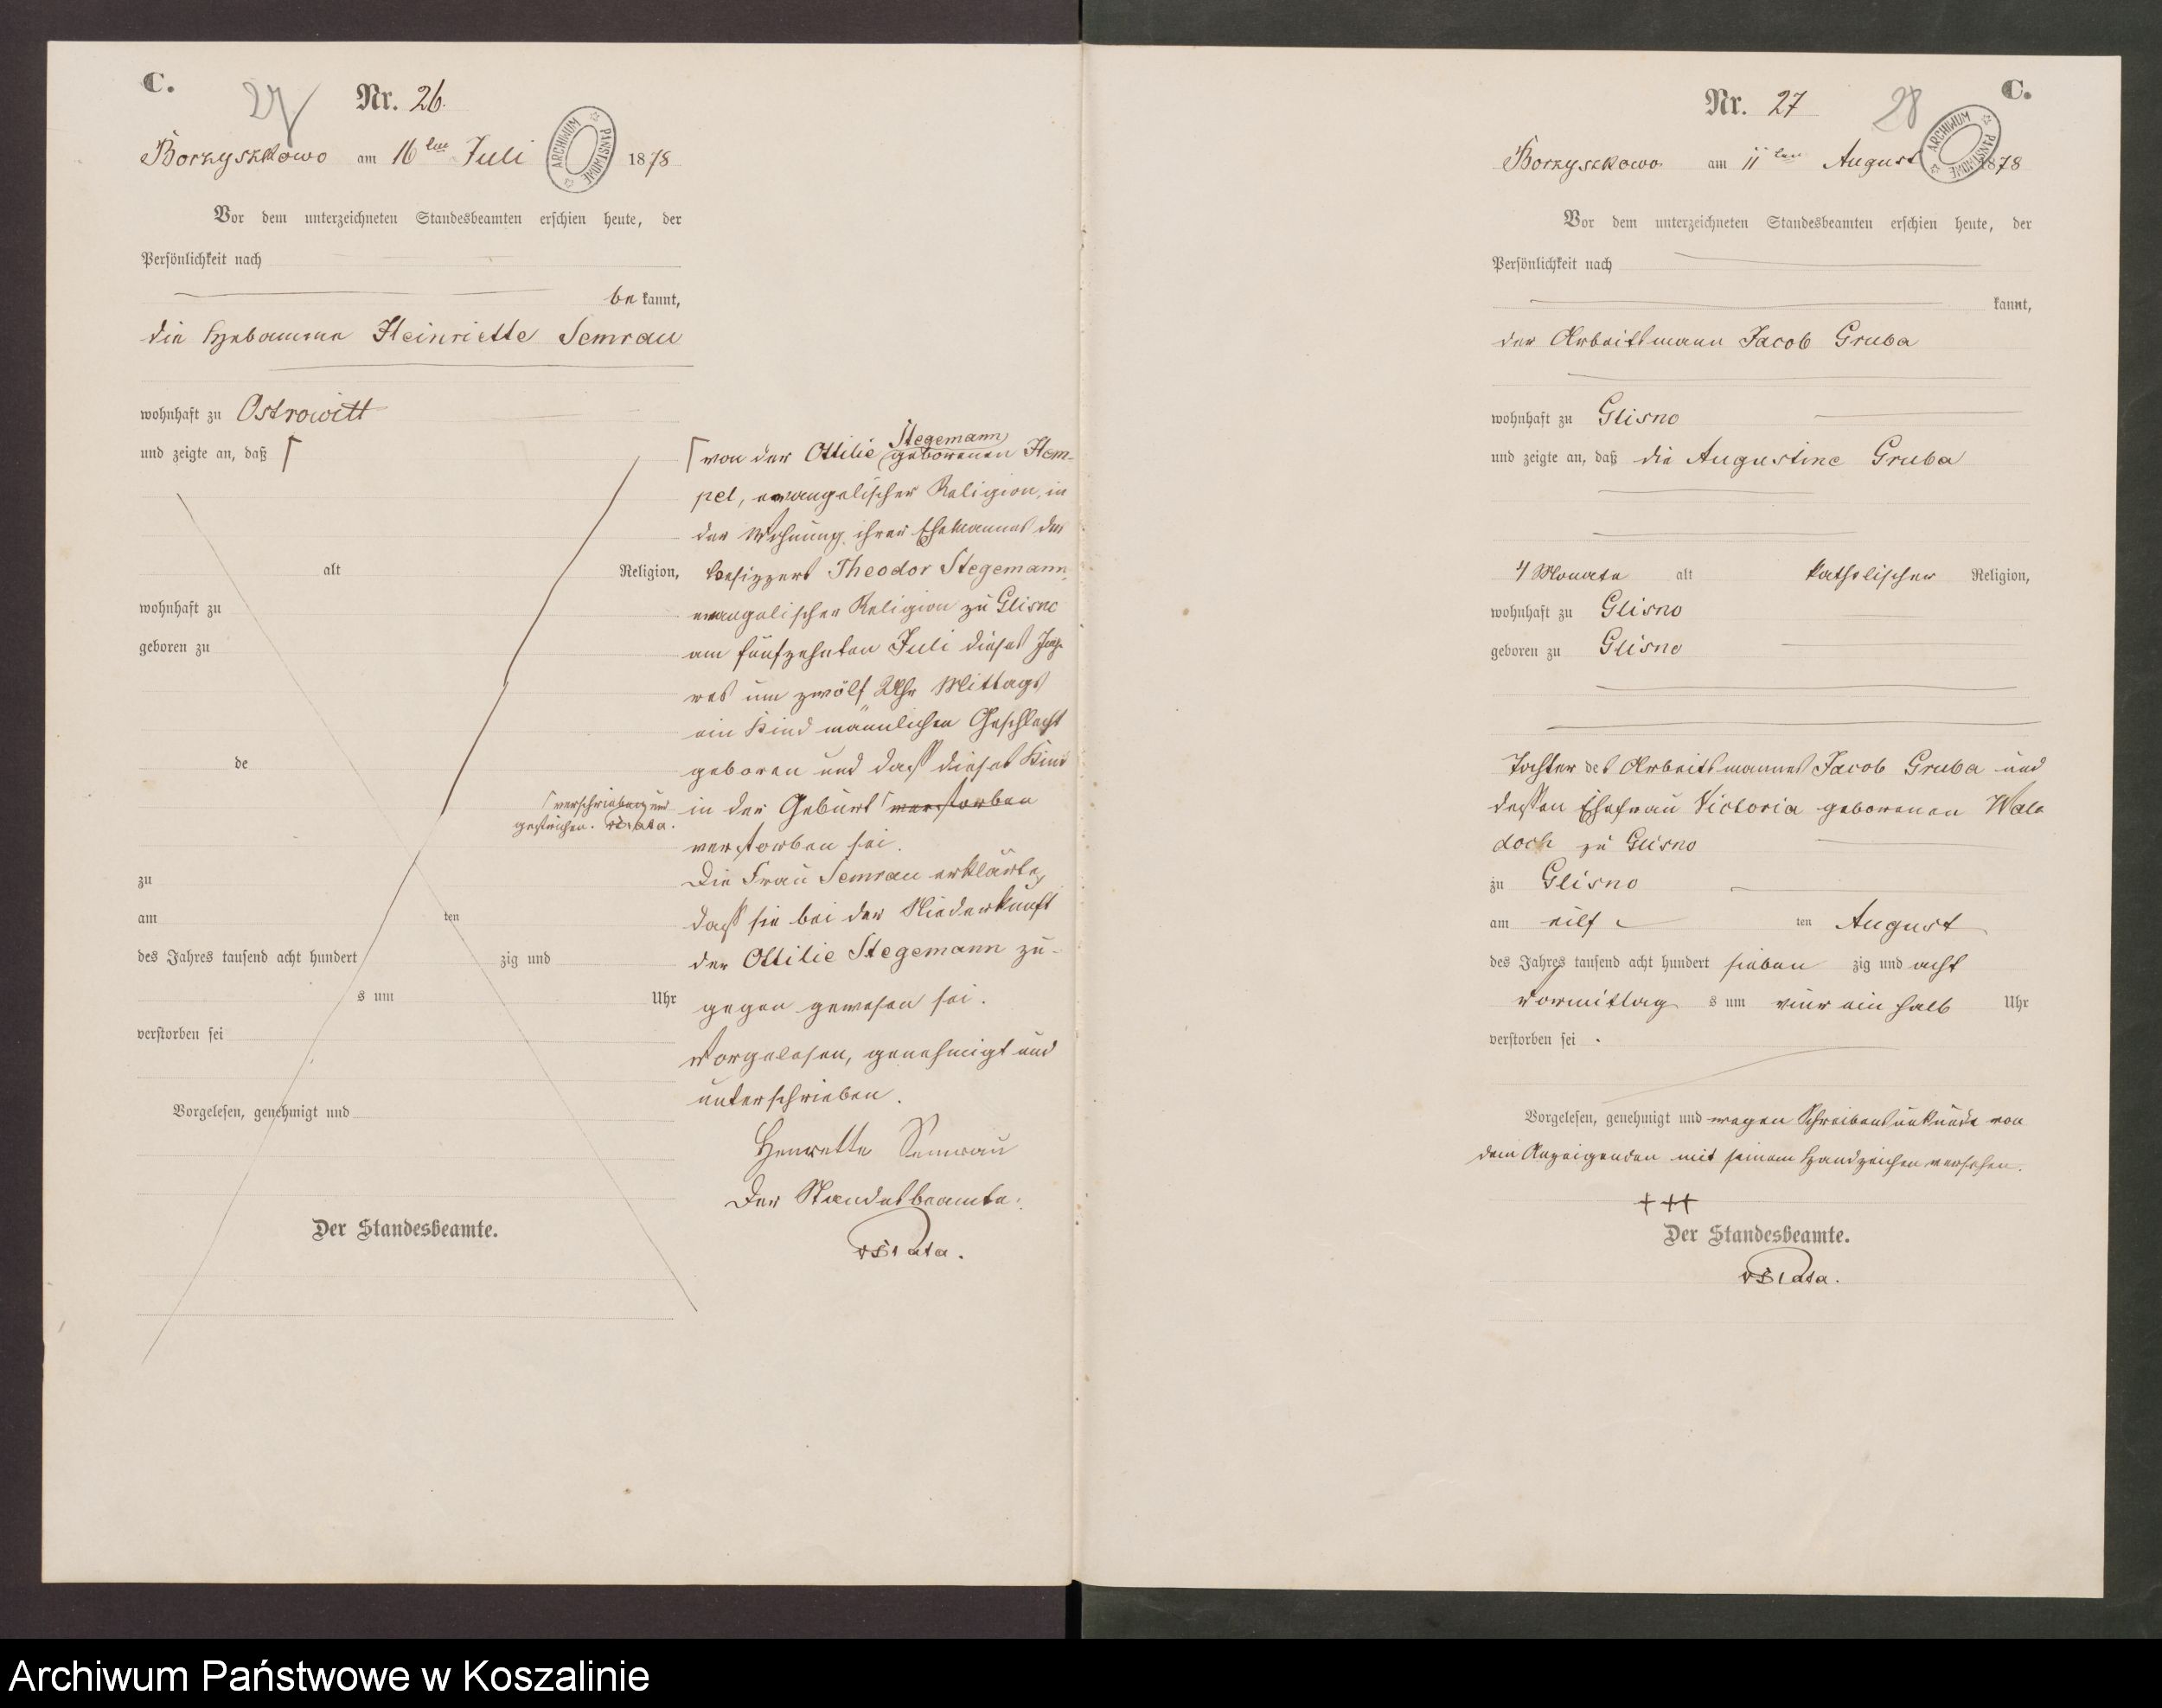 C.
27
Nr. 26.
ARCHIWUM PAŃSTWOWE
Borzyszkowo am 16ten Juli 1878
Vor dem unterzeichneten Standesbeamten erschien heute, der
Persönlichkeit nach
be kannt,
die Hebamme Heinriette Semrau
wohnhaft zu Ostrowitt
und zeigte an, daß ſ
alt Religion,
wohnhaft zu
geboren zu
de
zu
am ten
des Jahres tausend acht hundert zig und
s um Uhr
verstorben sei
Vorgelesen, genehmigt und
Der Standesbeamte.
Stegemann
von der Ottilie geborenen Hem-
pel, evangelischer Religion, in
der Wohnung ihres Ehemannes des
Besitzers Theodor Stegemann,
evangelischer Religion zu Glisno
am fünfzehnten Juli dieses Jah-
res um zwölf Uhr Mittags
ein Kind männlichen Geschlecht
geboren und daß dieses Kind
in der Geburt verstorben
verschrieben und
gestrichen.
verstorben sei.
Die Frau Semrau erklärte,
daß sie bei der Niederkunft
der Ottilie Stegemann zu-
gegen gewesen sei.
Vorgelesen, genehmigt und
unterschrieben.
Henrette Semrau
Der Standesbeamte.
C.
Nr. 27
28
ARCHIWUM PAŃSTWOWE
Borzyszkowo am 11ten August 1878
Vor dem unterzeichneten Standesbeamten erschien heute, der
Persönlichkeit nach
kannt,
der Arbeitsmann Jacob Gruba
wohnhaft zu Glisno
und zeigte an, daß die Augustine Gruba
4 Monate alt katholischer Religion,
wohnhaft zu Glisno
geboren zu Glisno
Tochter des Arbeitsmannes Jacob Gruba und
dessen Ehefrau Victoria geborenen Wala
doch zu Glisno
zu Glisno
am eilf ten August
des Jahres tausend acht hundert sieben zig und acht
Vormittag s um vier ein halb Uhr
verstorben sei .
Vorgelesen, genehmigt und wegen Schreibensunkunde von
dem Anzeigenden mit seinem Handzeichen versehen.
+++
Der Standesbeamte.
Archiwum Państwowe w Koszalinie